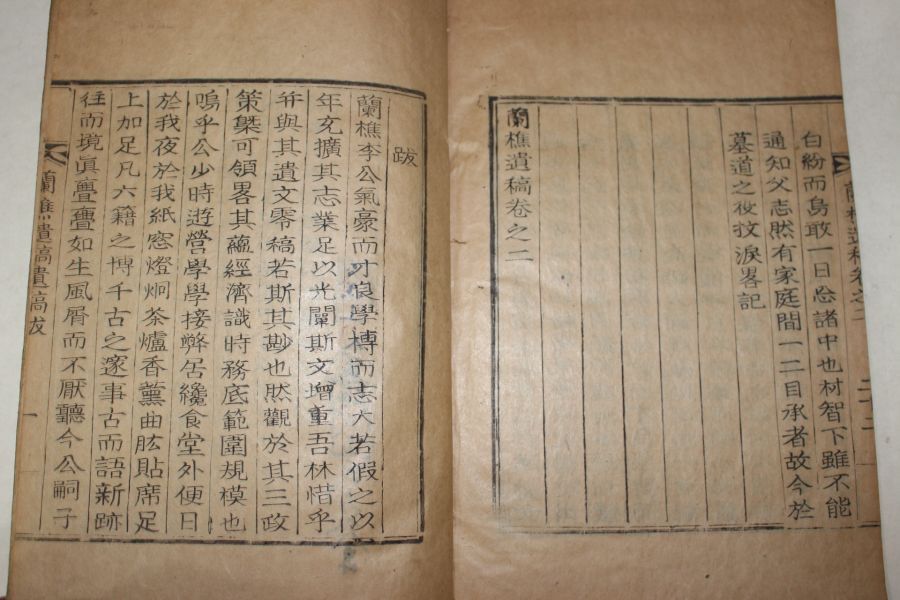 白紛而烏敢一日忘諸中也材智下雖不能
通知父志然有家庭間一二目承者故今於
墓道之役抆淚畧記
蘭樵遺稿卷之二
跋
蘭樵李公氣豪而才良學博而志大若假之以
年充擴其志業足以光闡斯文增重吾林惜乎
弁與其遺文零稿若斯其尠也然觀於其三政
策槩可領畧其蘊經濟識時務底範圍規模也
嗚乎公少時遊營學學接弊居纔食堂外便日
於我夜於我紙窓燈炯茶爐香薰曲肱貼席足
上加足凡六籍之博千古之邃事古而語新跡
往而境眞亹亹如生風屑而不厭聽今公嗣子
蘭樵遺稿遺稿跋
一